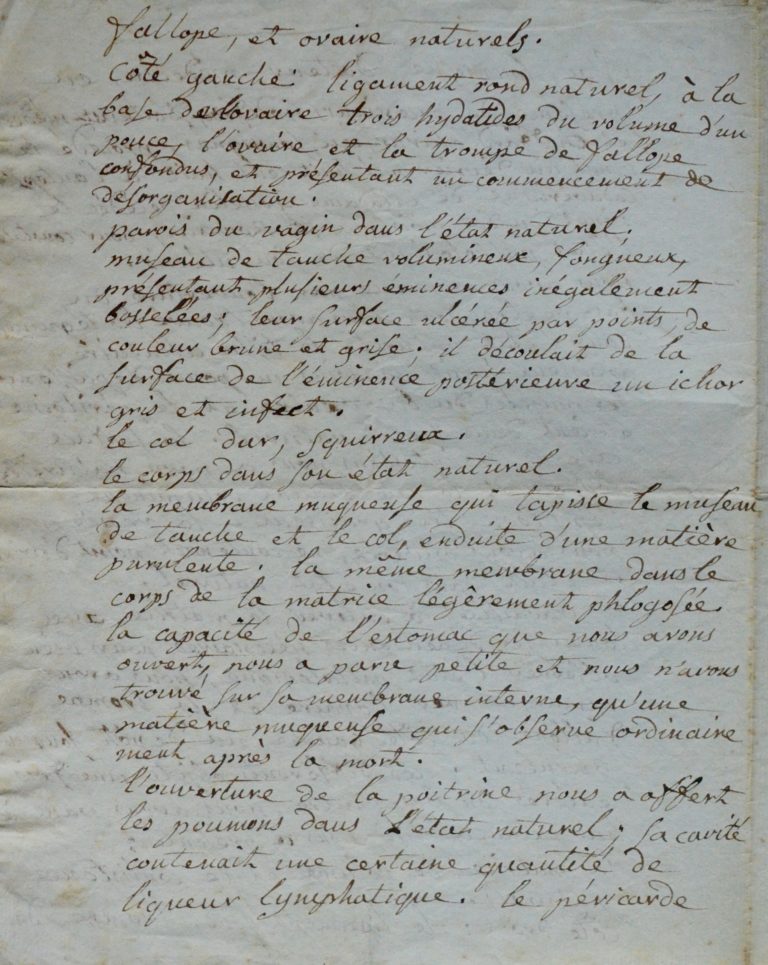 fallope, et ovaire naturels.
Côté gauche: ligament rond naturel, à la
base de l'ovaire trois hydatides du volume d'un
pouce, l'ovaire et la trompe de fallope
confondus, et présentant un commencement de
désorganisation.
parois du vagin dans l'état naturel.
museau de tanche volumineux, fongueux,
présentant plusieurs éminences inégalement
bosselées; leur surface ulcérée par points, de
couleur brune et grise. il découlait de la
surface de l'éminence postérieure un ichor
gris et infect.
le col dur, squirreux.
le corps dans son état naturel.
la membrane muqueuse qui tapisse le museau
de tanche et le col, enduite d'une matière
purulente. la même membrane dans le
corps de la matrice légèrement phlogosée.
la capacité de l'estomac que nous avons
ouvert, nous a paru petite et nous n'avons
trouvé sur sa membrane interne, qu'une
matière muqueuse qui s'observe ordinaire
ment après la mort.
l'ouverture de la poitrine nous a offert
les poumons dans l'état naturel; sa cavité
contenait une certaine quantité de
liqueur lymphatique. le péricarde